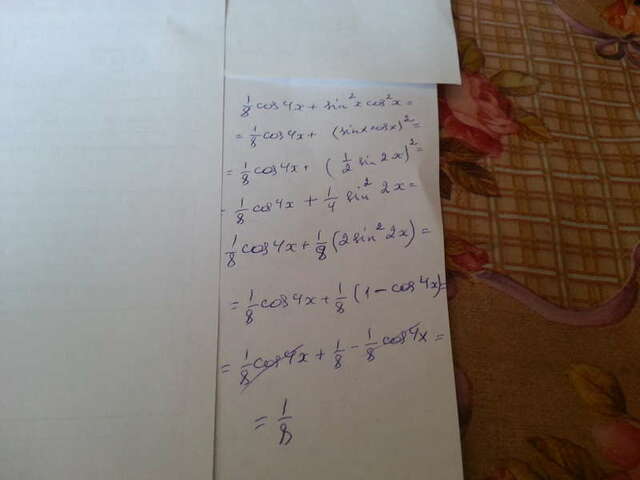 1/8 cos4x + sin²x cos²x =
= 1/8 cos4x + (sinx cosx)² =
= 1/8 cos4x + (1/2 sin 2x)² =
- 1/8 cos4x + 1/4 sin² 2x =
1/8 cos4x + 1/8 (2sin² 2x) =
= 1/8 cos4x + 1/8 (1 - cos4x) =
= 1/8 cos4x + 1/8 - 1/8 cos4x =
= 1/8